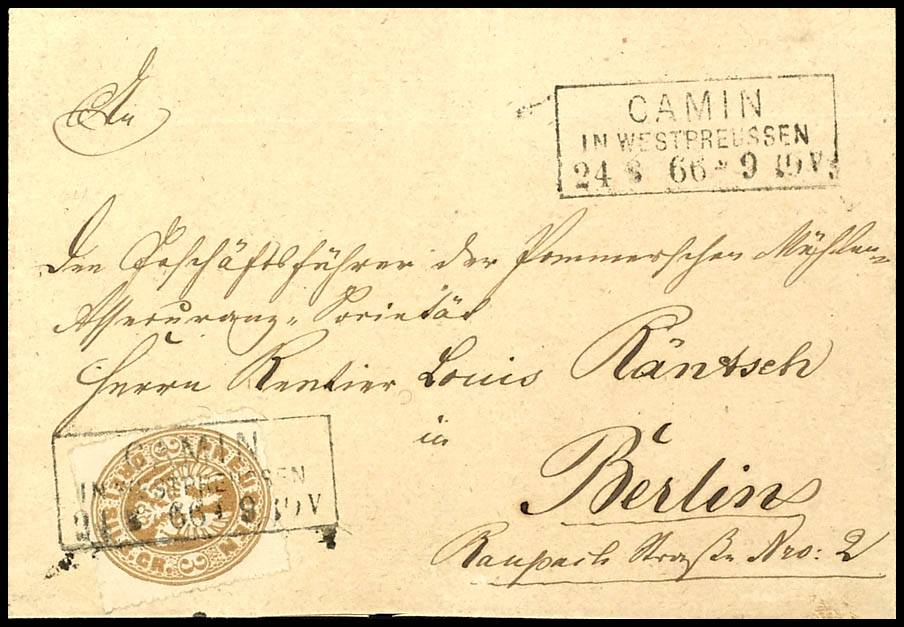 An
CAMIN
IN WESTPREUSSEN
24 8 66 * 9 10 V
den Geschäftsführer der Pommerschen Mühlen-
Assecuranz-Societät
Herrn Rentier Louis Räntsch
in
Berlin
Raupach Straße Nro: 2
CAMIN
IN WESTPREUSSEN
24 8 66 * 9 10 V
PREUSSEN
DREI SILB. GR.
3
3